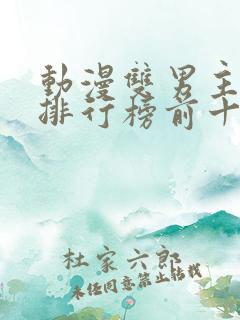 動漫雙男主
排行榜前十
杜家六郎
未經同意禁止轉載